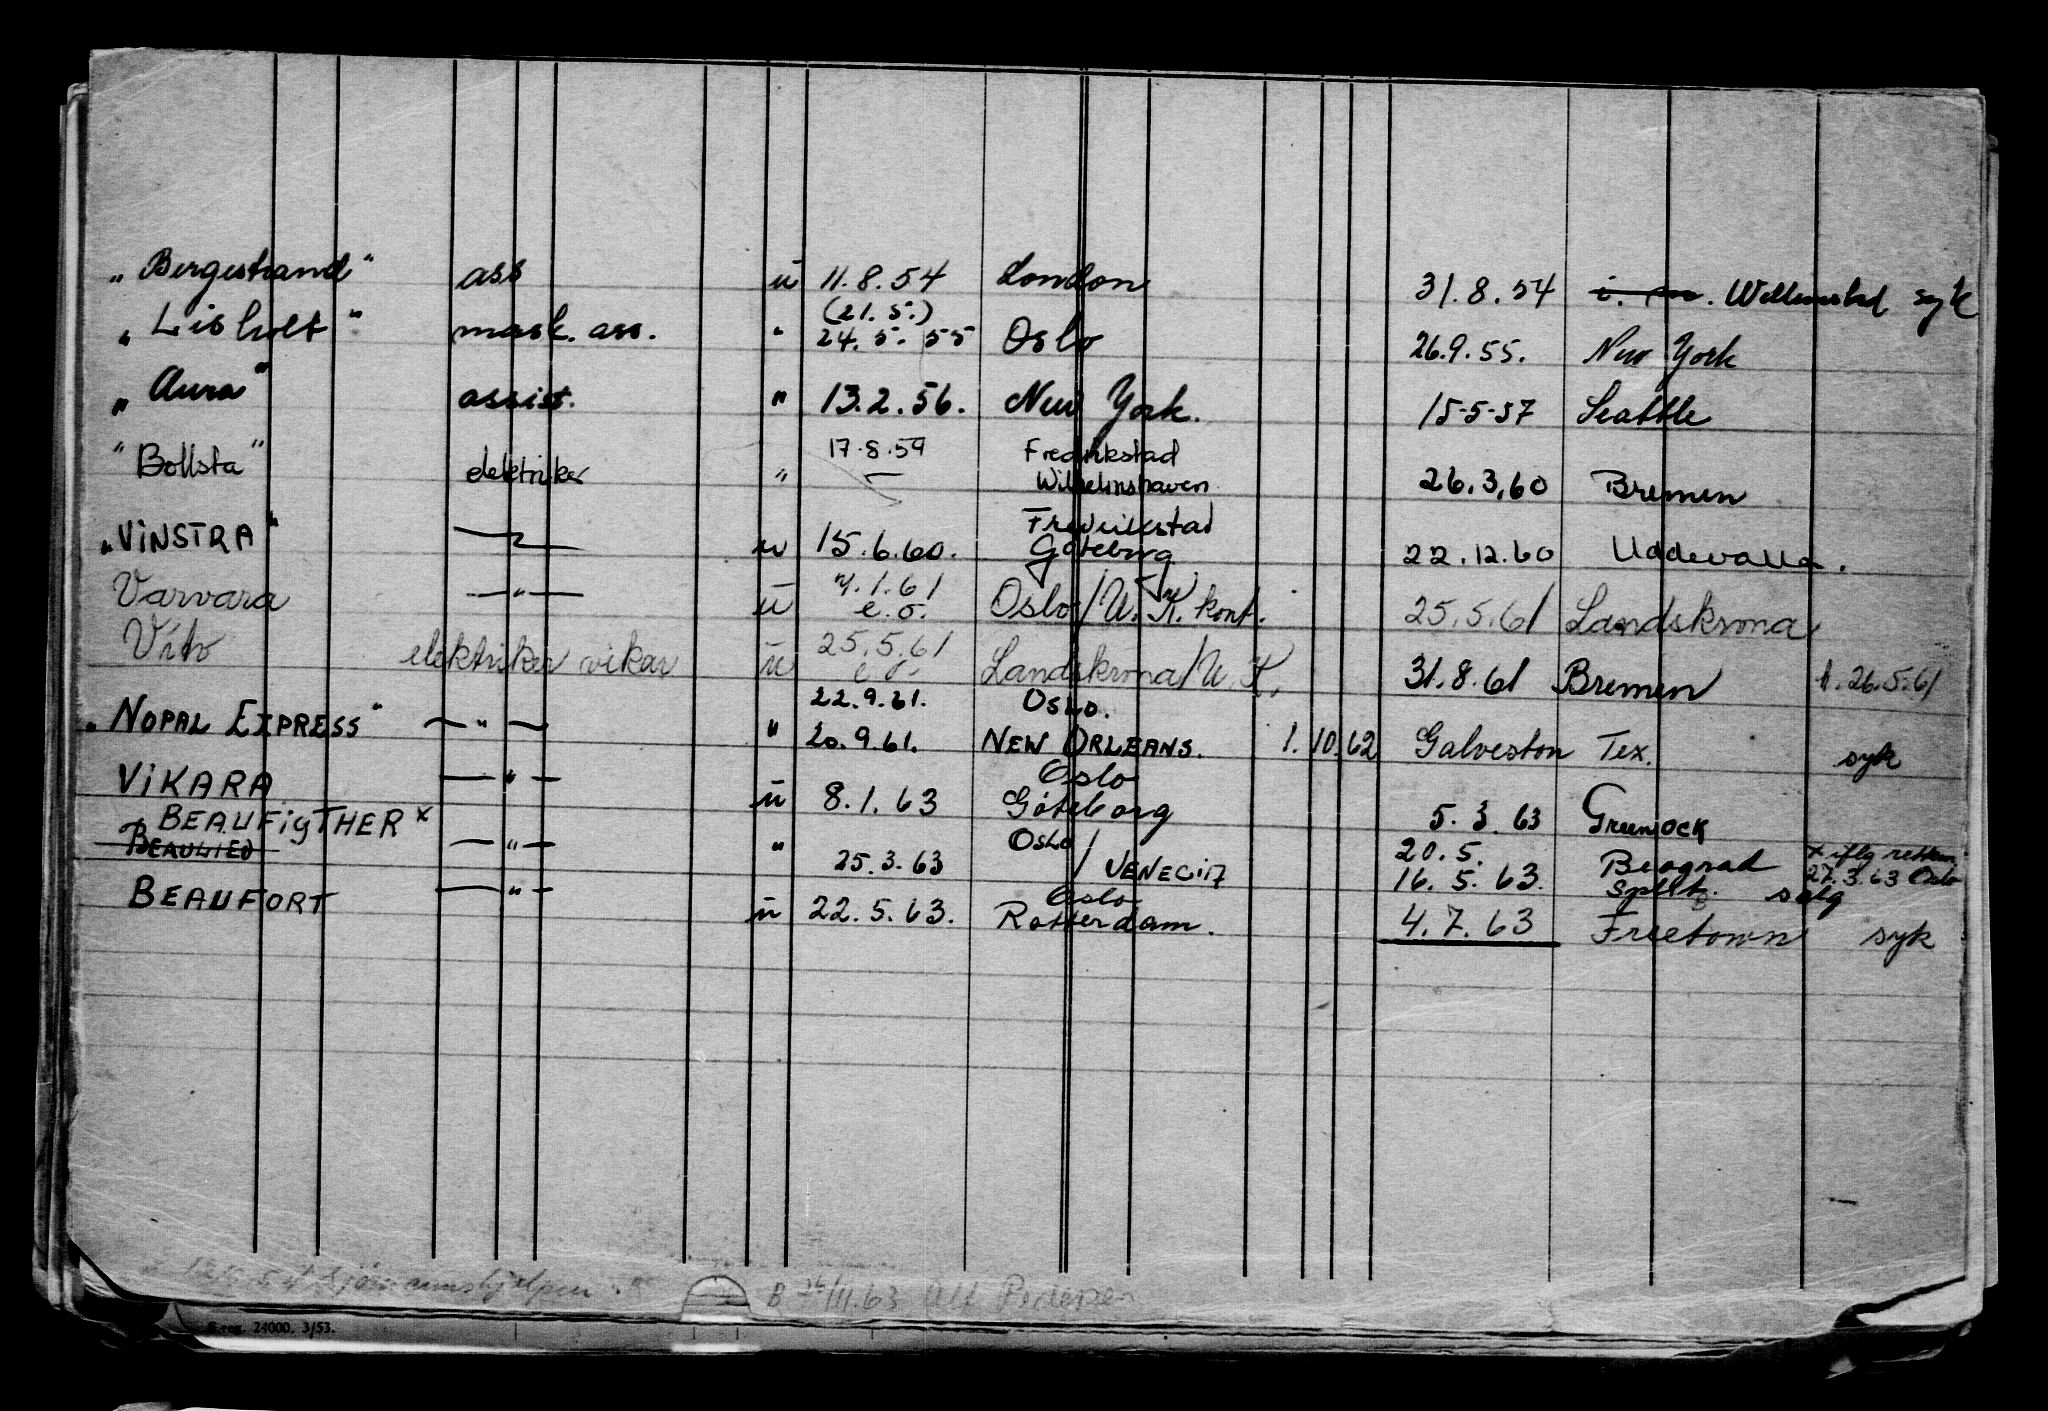 „Bergestrand“ ass u 11.8.54 London 31.8.54 Willemstad syk
(21.5.)
„Lisholt“ mask. ass. " 24.5.55 Oslo 26.9.55. New York
„Aura“ assist. " 13.2.56. New York. 15-5-57 Seattle
17.8.59 Fredrikstad
"Bollsta" elektriker " — Wilhelmshaven 26.3.60 Bremen
Fredrikstad
„VINSTRA“ — u 15.6.60. Gøteborg 22.12.60 Uddevalla.
7.1.61
Varvara —"— u e.o. Oslo/U.K. kont. 25.5.61 Landskrona
25.5.61
Vito elektriker vikar u e o Landskrona/U.K. 31.8.61 Bremen A. 26.5.61
22.9.61. OSLO.
„NOPAL EXPRESS“ —"— " 20.9.61. NEW ORLEANS. 1.10.62 Galveston Tex. syk
Oslo
VIKARA —"— u 8.1.63 Göteborg 5.3.63 Greenock
BEAUFIGTHER x OSLO 20.5. Beograd x iflg rettelse
BEAULIEU —"— " 25.3.63 / VENECIA 16.5.63. Split salg 27.3.63 Oslo
Oslo
BEAUFORT —"— u 22.5.63. Rotterdam. 4.7.63 Freetown syk
sjømannshjelpen B 26/III.63 Alf Pedersen
24000. 3/53.